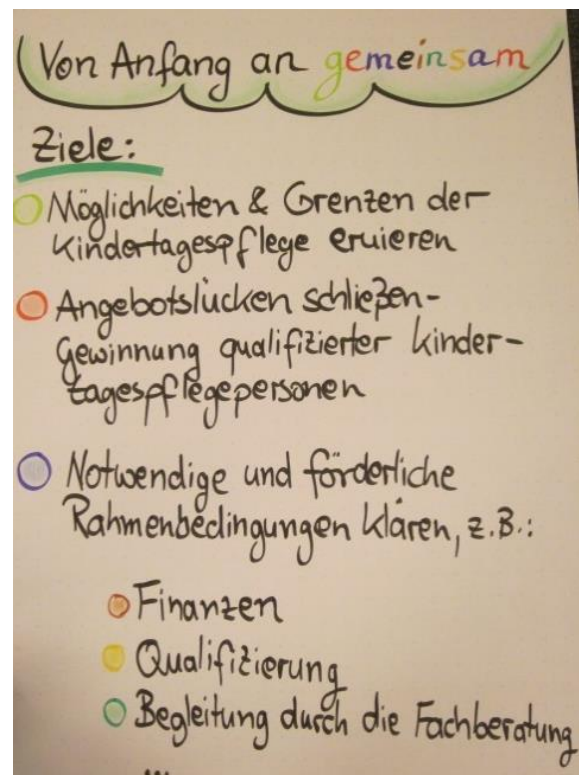 Von Anfang an gemeinsam
Ziele:
Möglichkeiten & Grenzen der
Kindertagespflege eruieren
Angebotslücken schließen-
Gewinnung qualifizierter Kinder-
tagespflegepersonen
Notwendige und förderliche
Rahmenbedingungen klären, z.B.:
Finanzen
Qualifizierung
Begleitung durch die Fachberatung
...